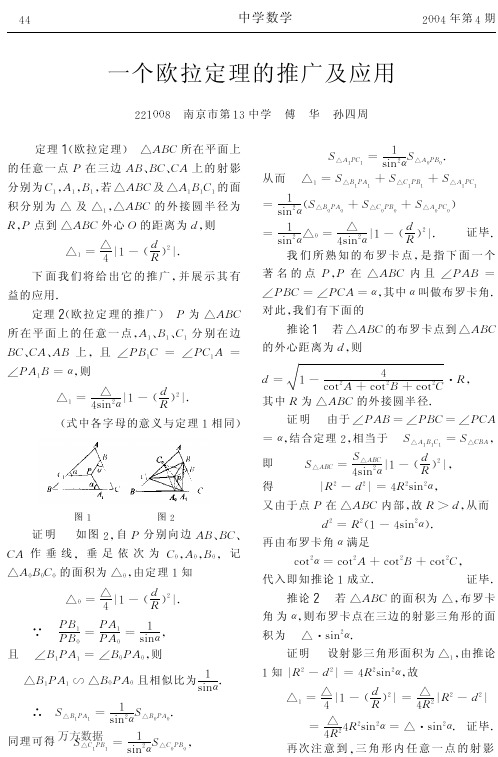 44
中学数学
2004 年第 4 期
一个欧拉定理的推广及应用
221008 南京市第 13 中学 傅 华 孙四周
定理 1(欧拉定理) △ABC 所在平面上
的任意一点 P 在三边 AB、BC、CA 上的射影
分别为C₁,A₁,B₁,若△ABC及△A₁B₁C₁ 的面
积分别为 △ 及 △₁,△ABC 的外接圆半径为
R,P 点到 △ABC 外心 O 的距离为 d,则
△₁ = △/4 |1 − (d/R)²|.
下面我们将给出它的推广,并展示其有
益的应用.
定理 2(欧拉定理的推广) P 为 △ABC
所在平面上的任意一点,A₁、B₁、C₁ 分别在边
BC、CA、AB 上, 且 ∠PB₁C = ∠PC₁A =
∠PA₁B = α,则
△₁ = △/(4sin²α) |1 − (d/R)²|.
(式中各字母的意义与定理 1 相同)
图 1 图 2
证明 如图 2,自 P 分别向边 AB、BC、
CA 作 垂 线, 垂 足 依 次 为 C₀,A₀,B₀, 记
△A₀B₀C₀ 的面积为 △₀,由定理 1 知
△₀ = △/4 |1 − (d/R)²|.
∵ PB₁/PB₀ = PA₁/PA₀ = 1/sinα,
且 ∠B₁PA₁ = ∠B₀PA₀,则
△B₁PA₁ ∽ △B₀PA₀ 且相似比为 1/sinα.
∴ S△B₁PA₁ = 1/sin²α S△B₀PA₀.
同理可得 S△C₁PB₁ = 1/sin²α S△C₀PB₀,
万方数据
S△A₁PC₁ = 1/sin²α S△A₀PB₀.
从而 △₁ = S△B₁PA₁ + S△C₁PB₁ + S△A₁PC₁
= 1/sin²α (S△B₀PA₀ + S△C₀PB₀ + S△A₀PC₀)
= 1/sin²α △₀ = △/(4sin²α) |1 − (d/R)²|. 证毕.
我们所熟知的布罗卡点,是指下面一个
著 名 的 点 P,P 在 △ABC 内 且 ∠PAB =
∠PBC = ∠PCA = α,其中 α 叫做布罗卡角.
对此,我们有下面的
推论 1 若 △ABC 的布罗卡点到 △ABC
的外心距离为 d,则
d = √(1 − 4/(cot²A + cot²B + cot²C)) · R,
其中 R 为 △ABC 的外接圆半径.
证明 由于∠PAB = ∠PBC = ∠PCA
= α,结合定理 2,相当于 S△A₁B₁C₁ = S△CBA,
即 S△ABC = S△ABC/(4sin²α) |1 − (d/R)²|,
得 |R² − d²| = 4R²sin²α,
又由于点 P 在 △ABC 内部,故 R > d,从而
d² = R²(1 − 4sin²α).
再由布罗卡角 α 满足
cot²α = cot²A + cot²B + cot²C,
代入即知推论 1 成立. 证毕.
推论 2 若 △ABC 的面积为 △,布罗卡
角为 α,则布罗卡点在三边的射影三角形的面
积为 △ · sin²α.
证明 设射影三角形面积为 △₁,由推论
1 知 |R² − d²| = 4R²sin²α,故
△₁ = △/4 |1 − (d/R)²| = △/4R² |R² − d²|
= △/4R² 4R²sin²α = △ · sin²α. 证毕.
再次注意到,三角形内任意一点的射影